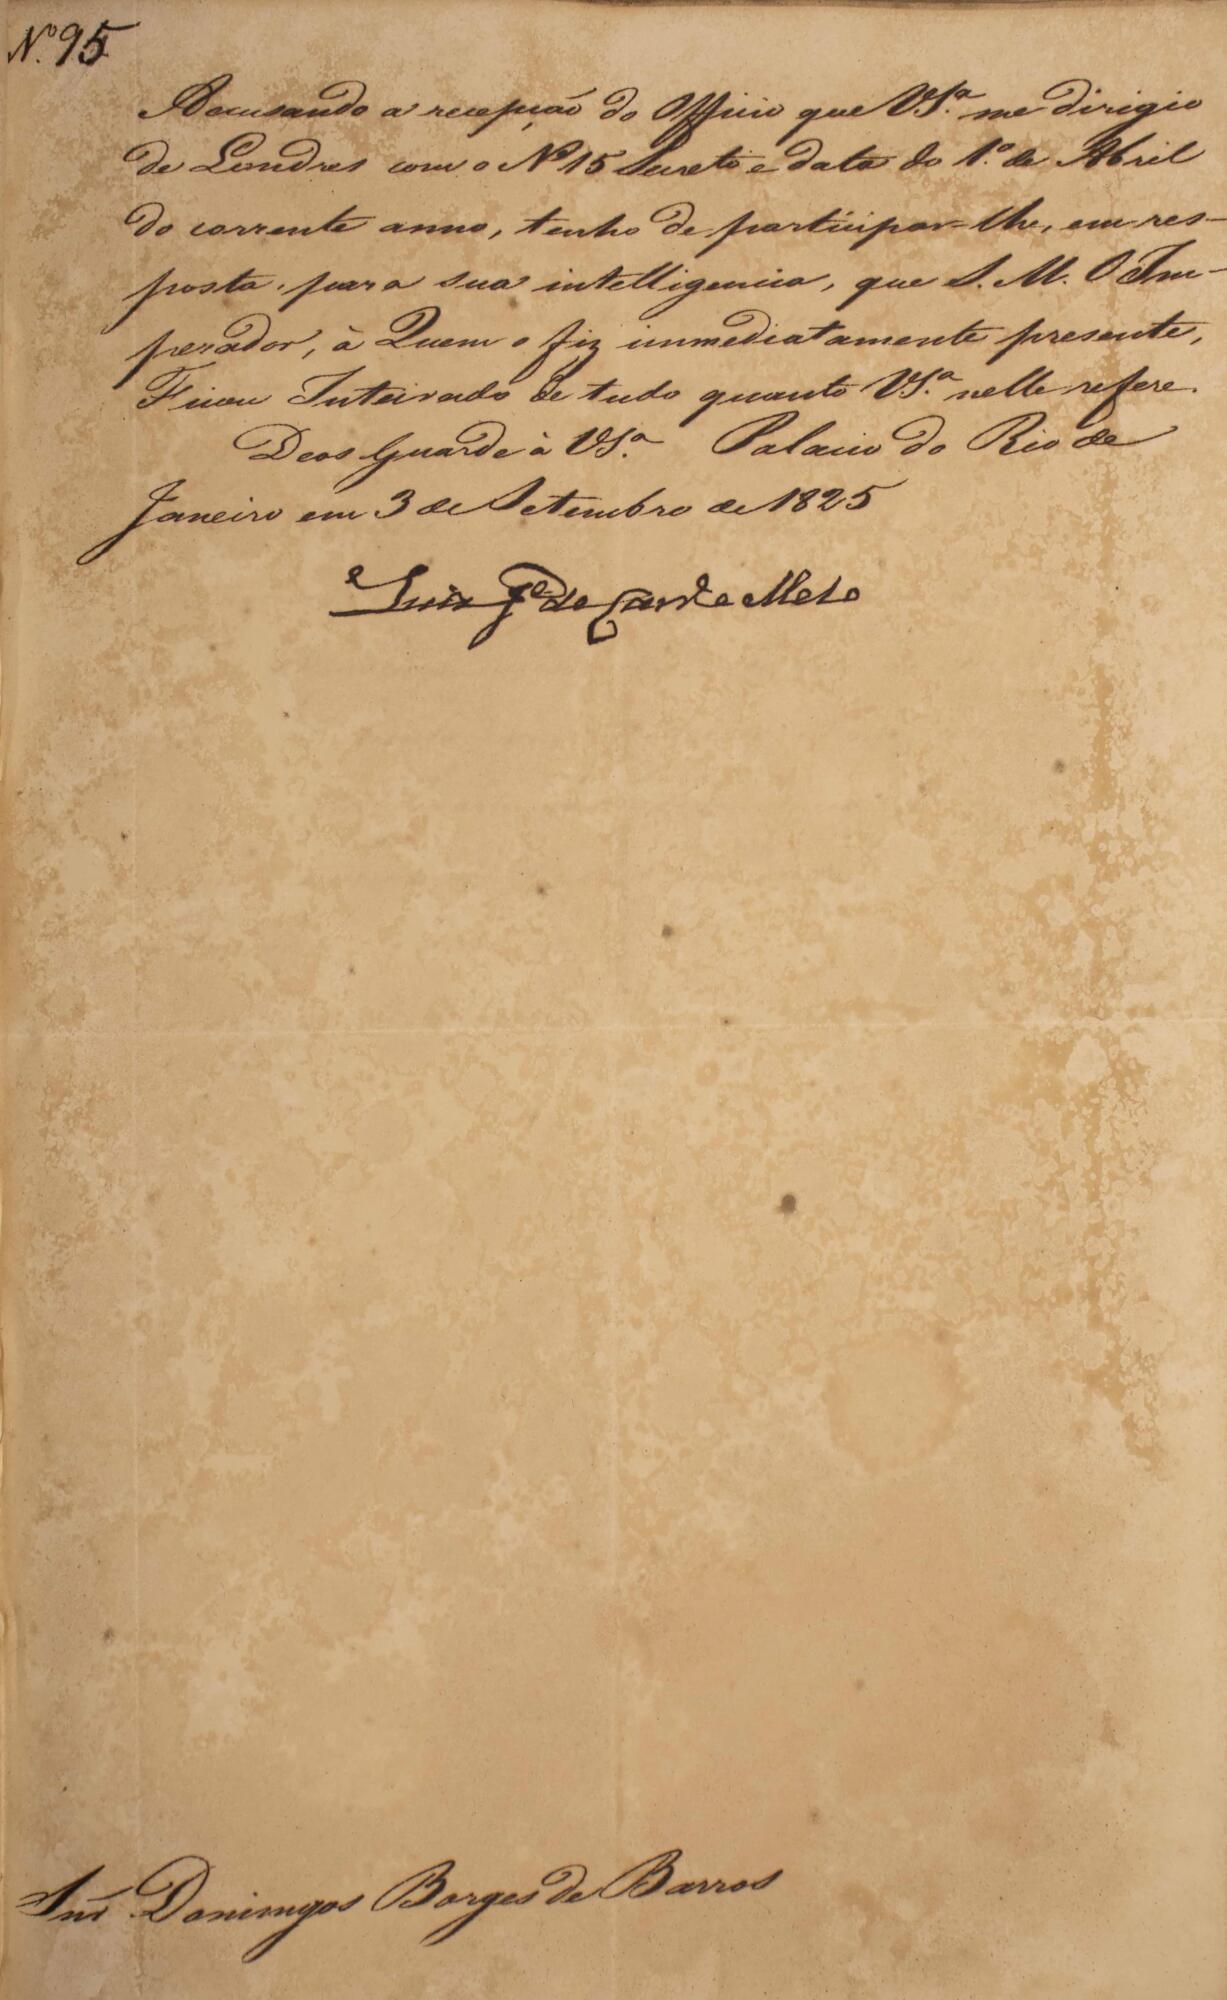 Nº 95
Accusando a recepção do Officio que VSª. me dirigio
de Londres com o Nº 15 Secreto e data do 1º. de Abril
do corrente anno, tenho de participar-lhe, em res-
posta, para sua intelligencia, que S. M. O Im-
perador, à Quem o fiz immediatamente presente,
Ficou Inteirado de tudo quanto VSª. nelle refere.
Deos Guarde à VSª. Palacio do Rio de
Janeiro em 3 de Setembro de 1825
Luiz Jᵉ de Carvº e Mello
Snr̃ Domingos Borges de Barros